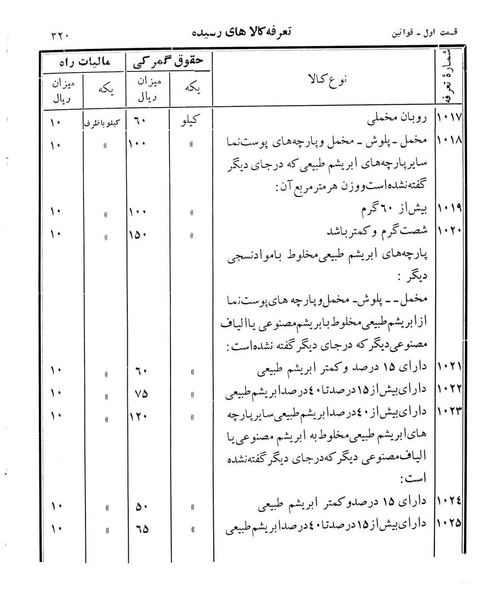 قسمت اول - قوانین
تعرفه کالا های رسیده
۳۲۰
شمارهٔ تعرفه
نوع کالا
حقوق گمرکی
مالیات راه
یکه
میزان ریال
یکه
میزان ریال
۱۰۱۷ روبان مخملی کیلو ۶۰ کیلو باظرف ۱۰
۱۰۱۸ مخمل - پلوش - مخمل و پارچه های پوست نما » ۱۰۰ » ۱۰
سایر پارچه های ابریشم طبیعی که در جای دیگر
گفته نشده است و وزن هر متر مربع آن:
۱۰۱۹ بیش از ۶۰ گرم » ۱۰۰ » ۱۰
۱۰۲۰ شصت گرم و کمتر باشد » ۱۵۰ » ۱۰
پارچه های ابریشم طبیعی مخلوط با مواد نسجی
دیگر :
مخمل - - پلوش - مخمل و پارچه های پوست نما
از ابریشم طبیعی مخلوط با بریشم مصنوعی یا الیاف
مصنوعی دیگر که در جای دیگر گفته نشده است:
۱۰۲۱ دارای ۱۵ درصد و کمتر ابریشم طبیعی » ۶۰ » ۱۰
۱۰۲۲ دارای بیش از ۱۵ درصد تا ۴۰ درصد ابریشم طبیعی » ۷۵ » ۱۰
۱۰۲۳ دارای بیش از ۴۰ درصد ابریشم طبیعی سایر پارچه » ۱۲۰ » ۱۰
های ابریشم طبیعی مخلوط به ابریشم مصنوعی یا
الیاف مصنوعی دیگر که در جای دیگر گفته نشده
است:
۱۰۲۴ دارای ۱۵ درصد و کمتر ابریشم طبیعی » ۵۰ » ۱۰
۱۰۲۵ دارای بیش از ۱۵ درصد تا ۴۰ درصد ابریشم طبیعی » ۶۵ » ۱۰